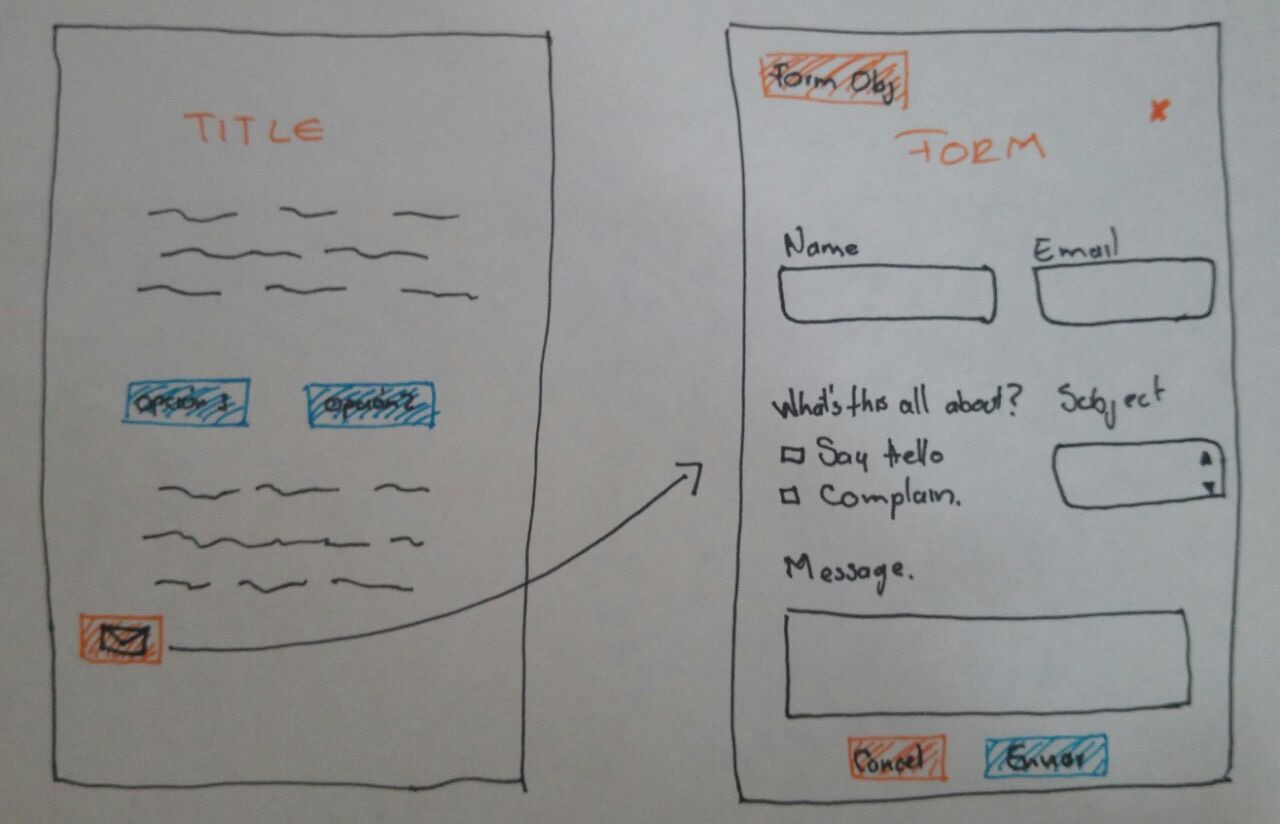 TITLE
opción 1
opción 2
Form Obj
x
FORM
Name
Email
What's this all about?
Subject
Say Hello
Complain.
Message.
Cancel
Enviar